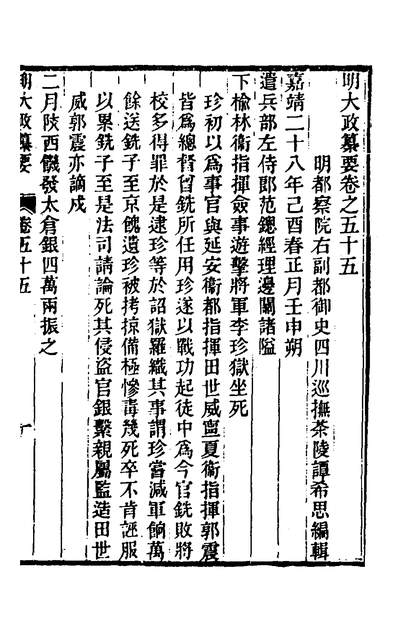 明大政纂要卷之五十五
明都察院右副都御史四川巡撫茶陵譚希思編輯
嘉靖二十八年己酉春正月壬申朔
遣兵部左侍郎范鏓經理邊關諸隘
下榆林衞指揮僉事遊擊將軍李珍獄坐死
珍初以爲事官與延安衞都指揮田世威寧夏衞指揮郭震
皆爲總督曾銑所任用珍遂以戰功起徒中爲今官銑敗將
校多得罪於是逮珍等於詔獄羅織其事謂珍當減軍餉萬
餘送銑子至京餽遺珍被拷掠備極慘毒幾死卒不肯誣服
以累銑子至是法司請論死其侵盜官銀繫親屬監造田世
威郭震亦謫戍
二月陝西饑發太倉銀四萬兩振之
明大政纂要
卷五十五
一